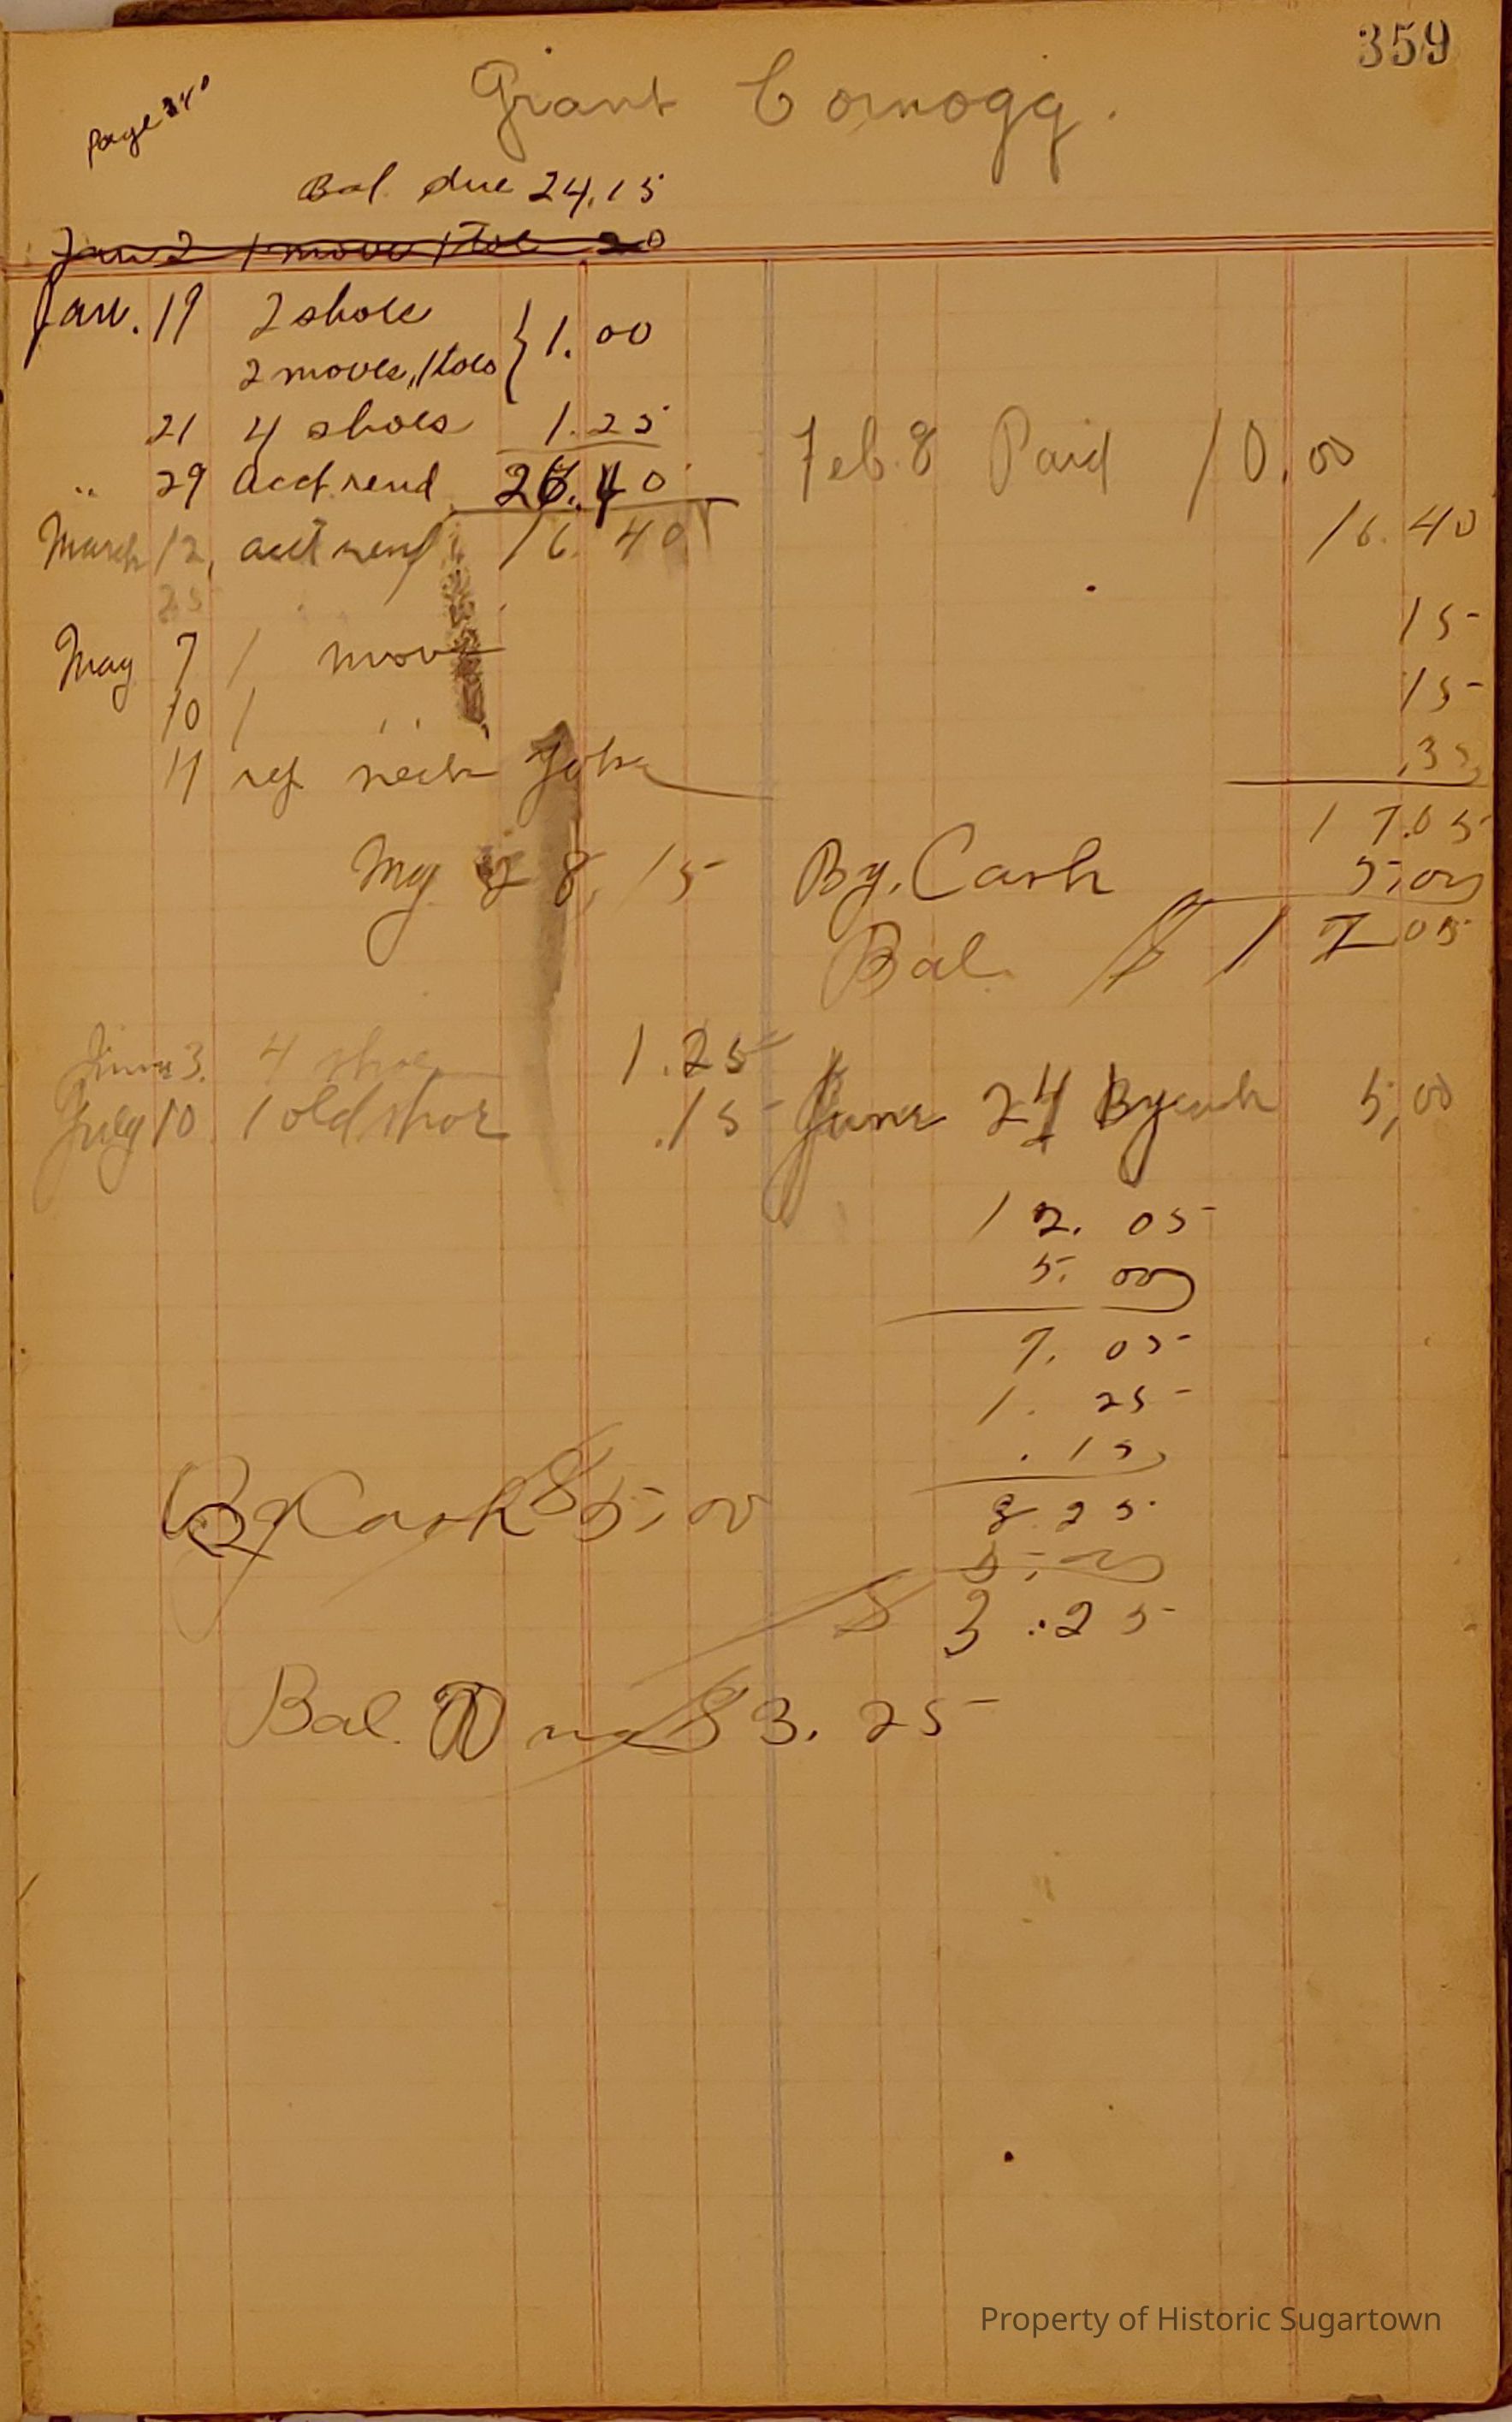 359
Grant Cornogg.
Page 340
Bal. due 24.15
Jan 2 1 move 1 toe 20
Jan. 19 2 shoes
2 moves, 1 toes } 1.00
21 4 shoes 1.25
" 29 acct. rend. 26.40
Feb. 8 Paid 10.00
March 12, acct rend 16.40
16.40
25
May 7 1 move 15
10 1 " 15
11 rep neck yoke .35
17.05
My 28, 15 By, Cash 5,00
Bal. $ 17 05
June 3. 4 shoe 1.25
July 10. 1 old shoe .15
June 24 By cash 5,00
12.05
5.00
7.05
1.25
.15
8.25
By Cash $5,00
5,00
$ 3.25
Bal. Due $3.25
Property of Historic Sugartown